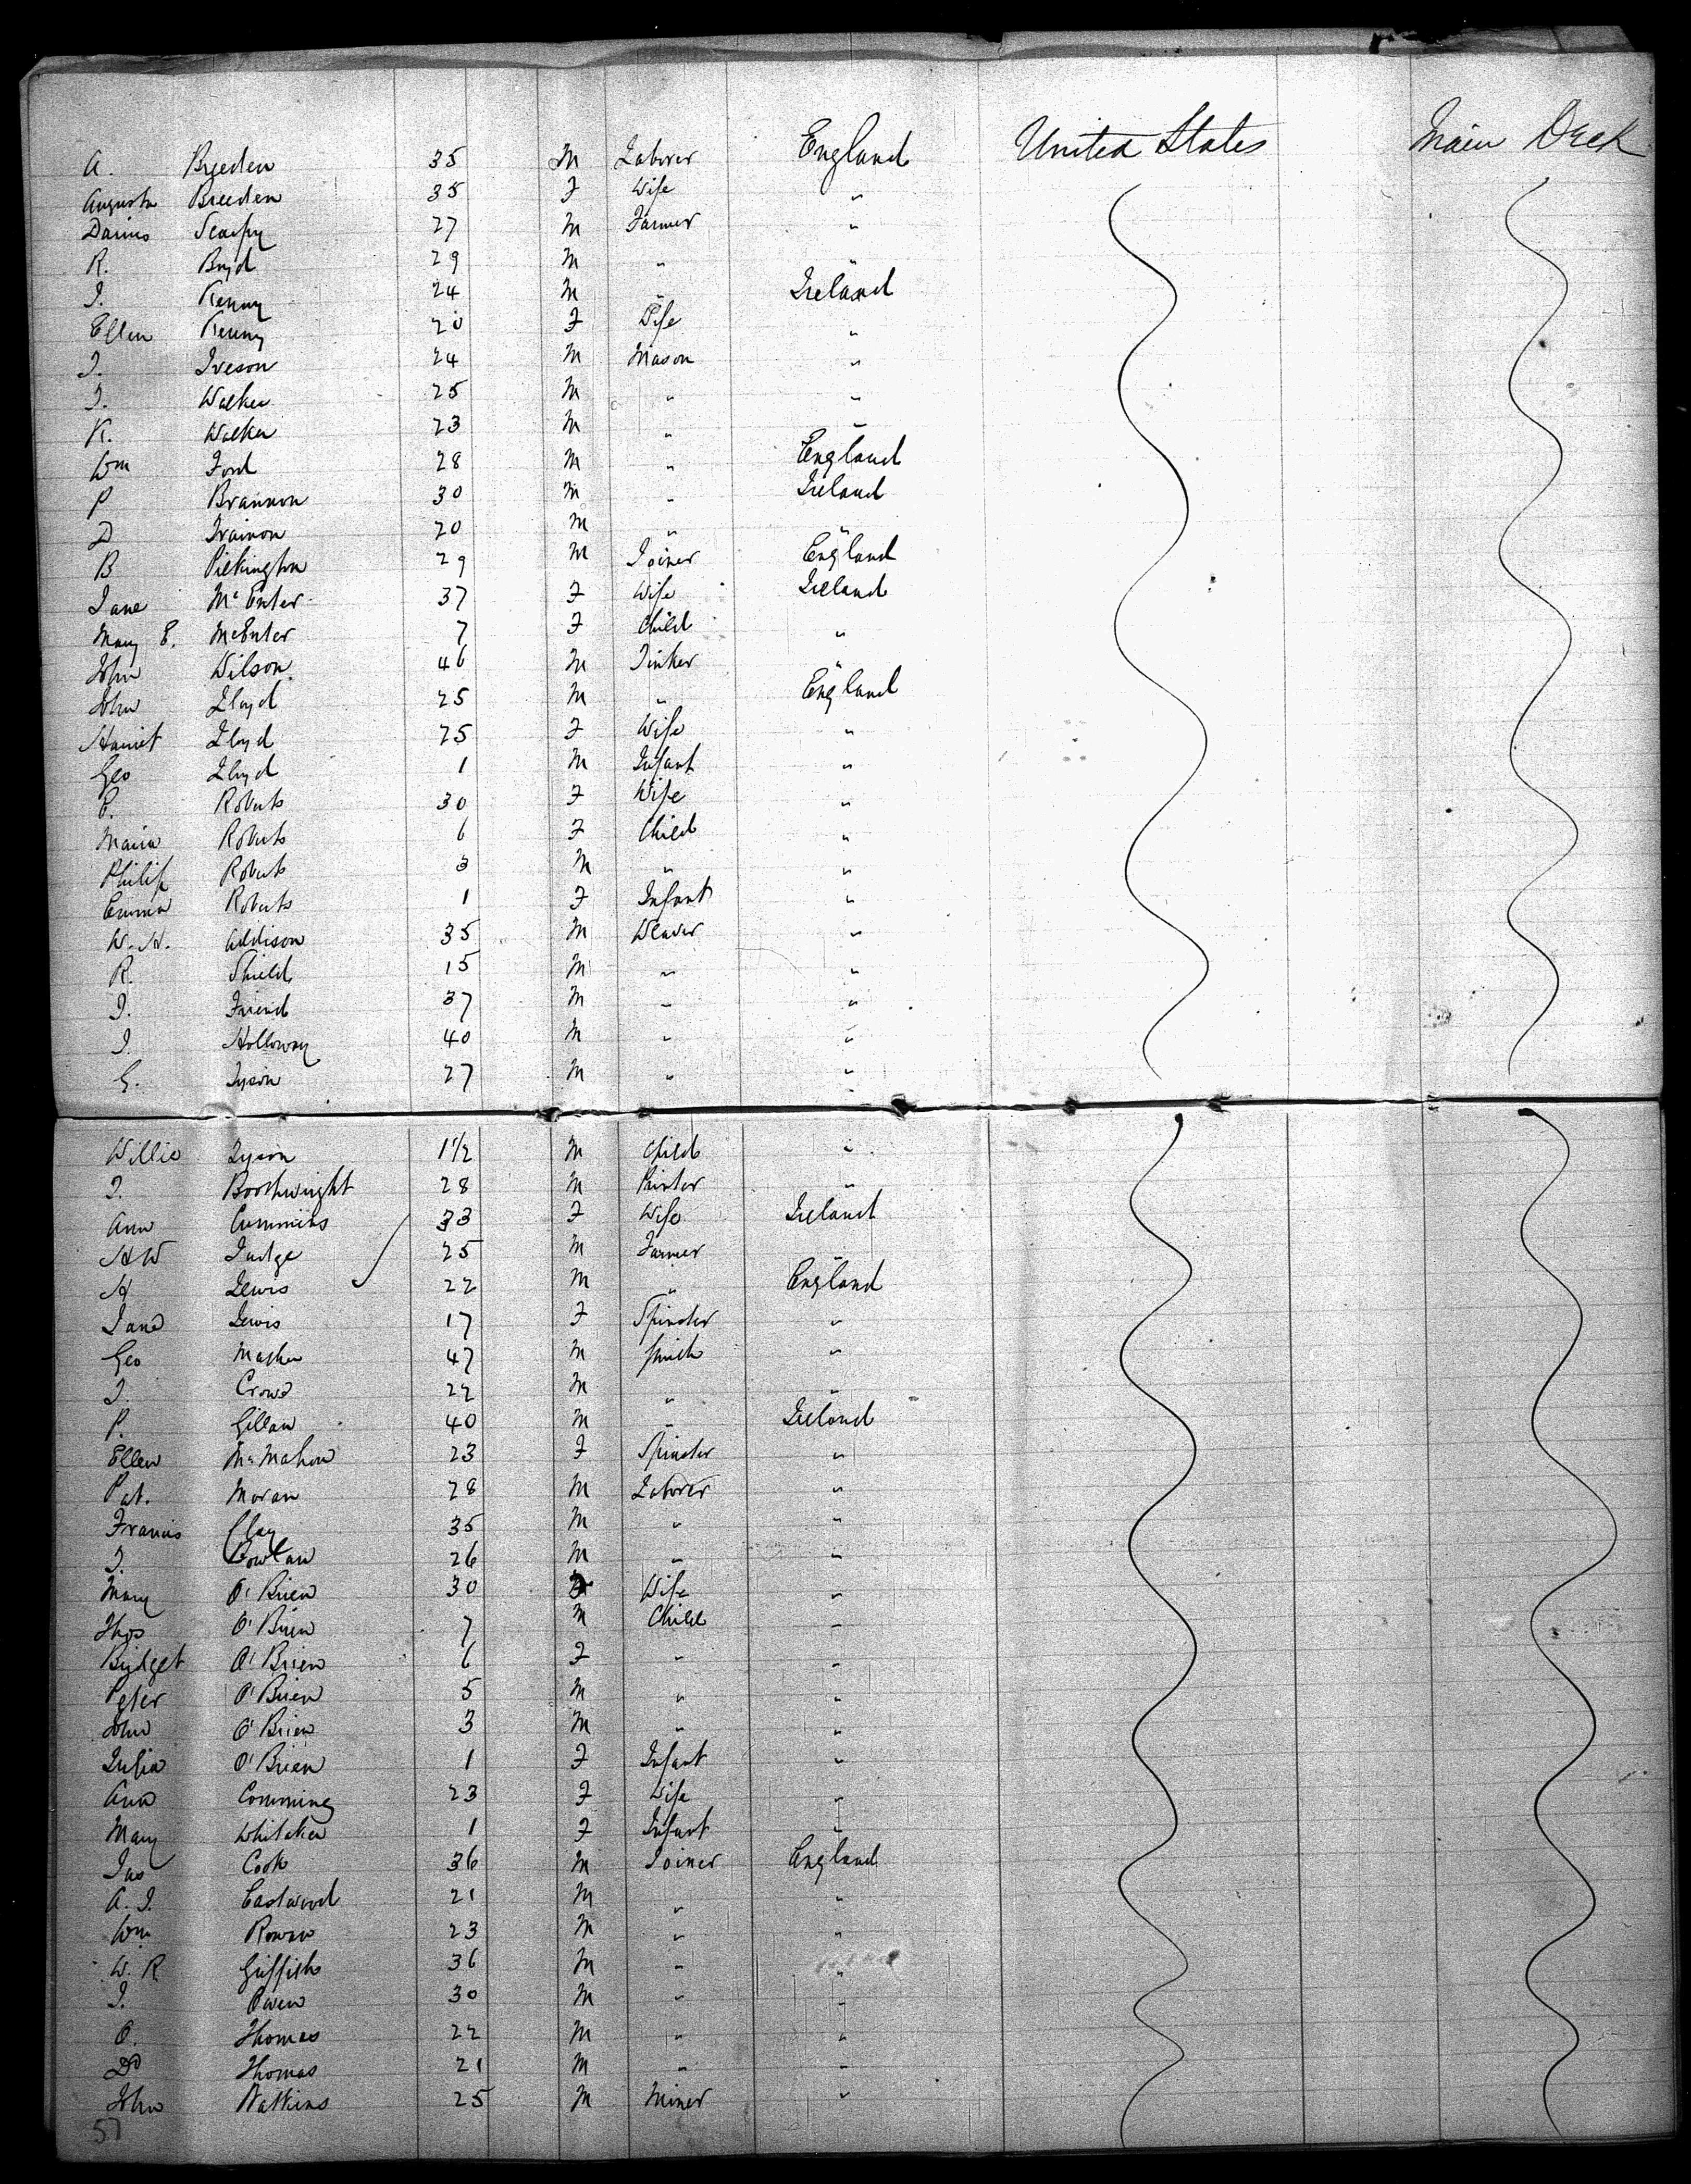 A. Breeden 35 M Laborer England United States Main Deck
Augusta Breeden 35 F Wife "
Darius 27 M Farmer "
R. Boyd 29 M " "
J. Kenny 24 M " Ireland
Ellen Kenny 20 F Wife "
J. Iveson 24 M Mason "
J. Walker 25 M " "
K. Walker 23 M " "
Wm Ford 28 M " England
P Brannon 30 M " Ireland
D Trainon 20 M " "
B Pilkington 29 M Joiner England
Jane McEnter 37 F Wife Ireland
Mary E. McEnter 7 F Child "
John Wilson 46 M Tinker "
John Lloyd 25 M " England
Harriet Lloyd 25 F Wife "
Geo Lloyd 1 M Infant "
E. Roberts 30 F Wife "
Maria Roberts 6 F Child "
Philip Roberts 3 M " "
Emma Roberts 1 F Infant "
W. H. Addison 35 M Weaver "
R. Shield 15 M " "
J. Friend 37 M " "
J. Holloway 40 M " "
G. Tyson 27 M " "
Willie Tyson 1 1/2 M Child "
J. Boothwright 28 M Printer "
Ann Cummins 33 F Wife Ireland
H W Judge 25 M Farmer "
H Lewis 22 M " England
Jane Lewis 17 F Spinster "
Geo 47 M Smith "
J. Crowe 22 M " "
P. Gillan 40 M " Ireland
Ellen McMahon 23 F Spinster "
Pat. Moran 28 M Laborer "
Francis Clay 35 M " "
J. Bowlan 26 M " "
Mary O'Brien 30 F Wife "
Thos O'Brien 7 M Child "
Bridget O'Brien 6 F " "
Peter O'Brien 5 M " "
John O'Brien 3 M " "
Julia O'Brien 1 F Infant "
Ann Comming 23 F Wife "
Mary Whitaker 1 F Infant "
Jas Cook 36 M Joiner England
A. J. Eastwood 21 M " "
Wm Rowan 23 M " "
W. R Griffiths 36 M " "
J. Owen 30 M " "
O. Thomas 22 M " "
Dd Thomas 21 M " "
John Watkins 25 M Miner "
57